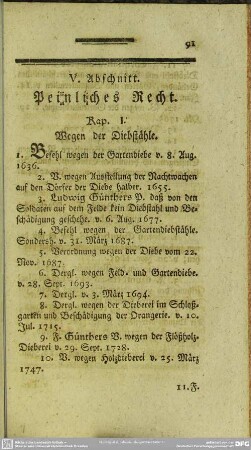 91
V. Abschnitt.
Peinliches Recht.
Kap. I.
Wegen der Diebstähle.
1. Befehl wegen der Gartendiebe v. 8. Aug.
1636.
2. V. wegen Ausstellung der Nachtwachen
auf den Dörfer der Diebe halber. 1655.
3. Ludwig Günthers P. daß von den
Soldaten auf dem Felde kein Diebstahl und Be-
schädigung geschehe. v. 6. Aug. 1677.
4. Befehl wegen der Gartendiebstähle.
Sondersh. v. 31. März 1687.
5. Verordnung wegen der Diebe vom 22.
Nov. 1687.
6. Dergl. wegen Feld- und Gartendiebe.
v. 28. Sept. 1693.
7. Dergl. v. 3. März 1694.
8. Dergl. wegen der Dieberei im Schloß-
garten und Beschädigung der Orangerie. v. 10.
Jul. 1715.
9. F. Günthers V. wegen der Flößholz-
Dieberei v. 29. Sept. 1728.
10. V. wegen Holzdieberei v. 25. März
1747.
11. F.